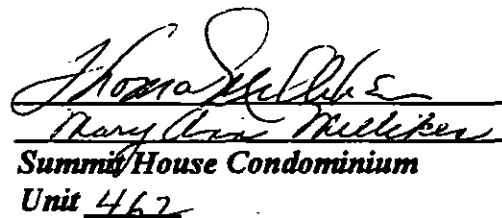 Thomas Milliken
Mary Ann Milliken
Summit House Condominium
Unit 462